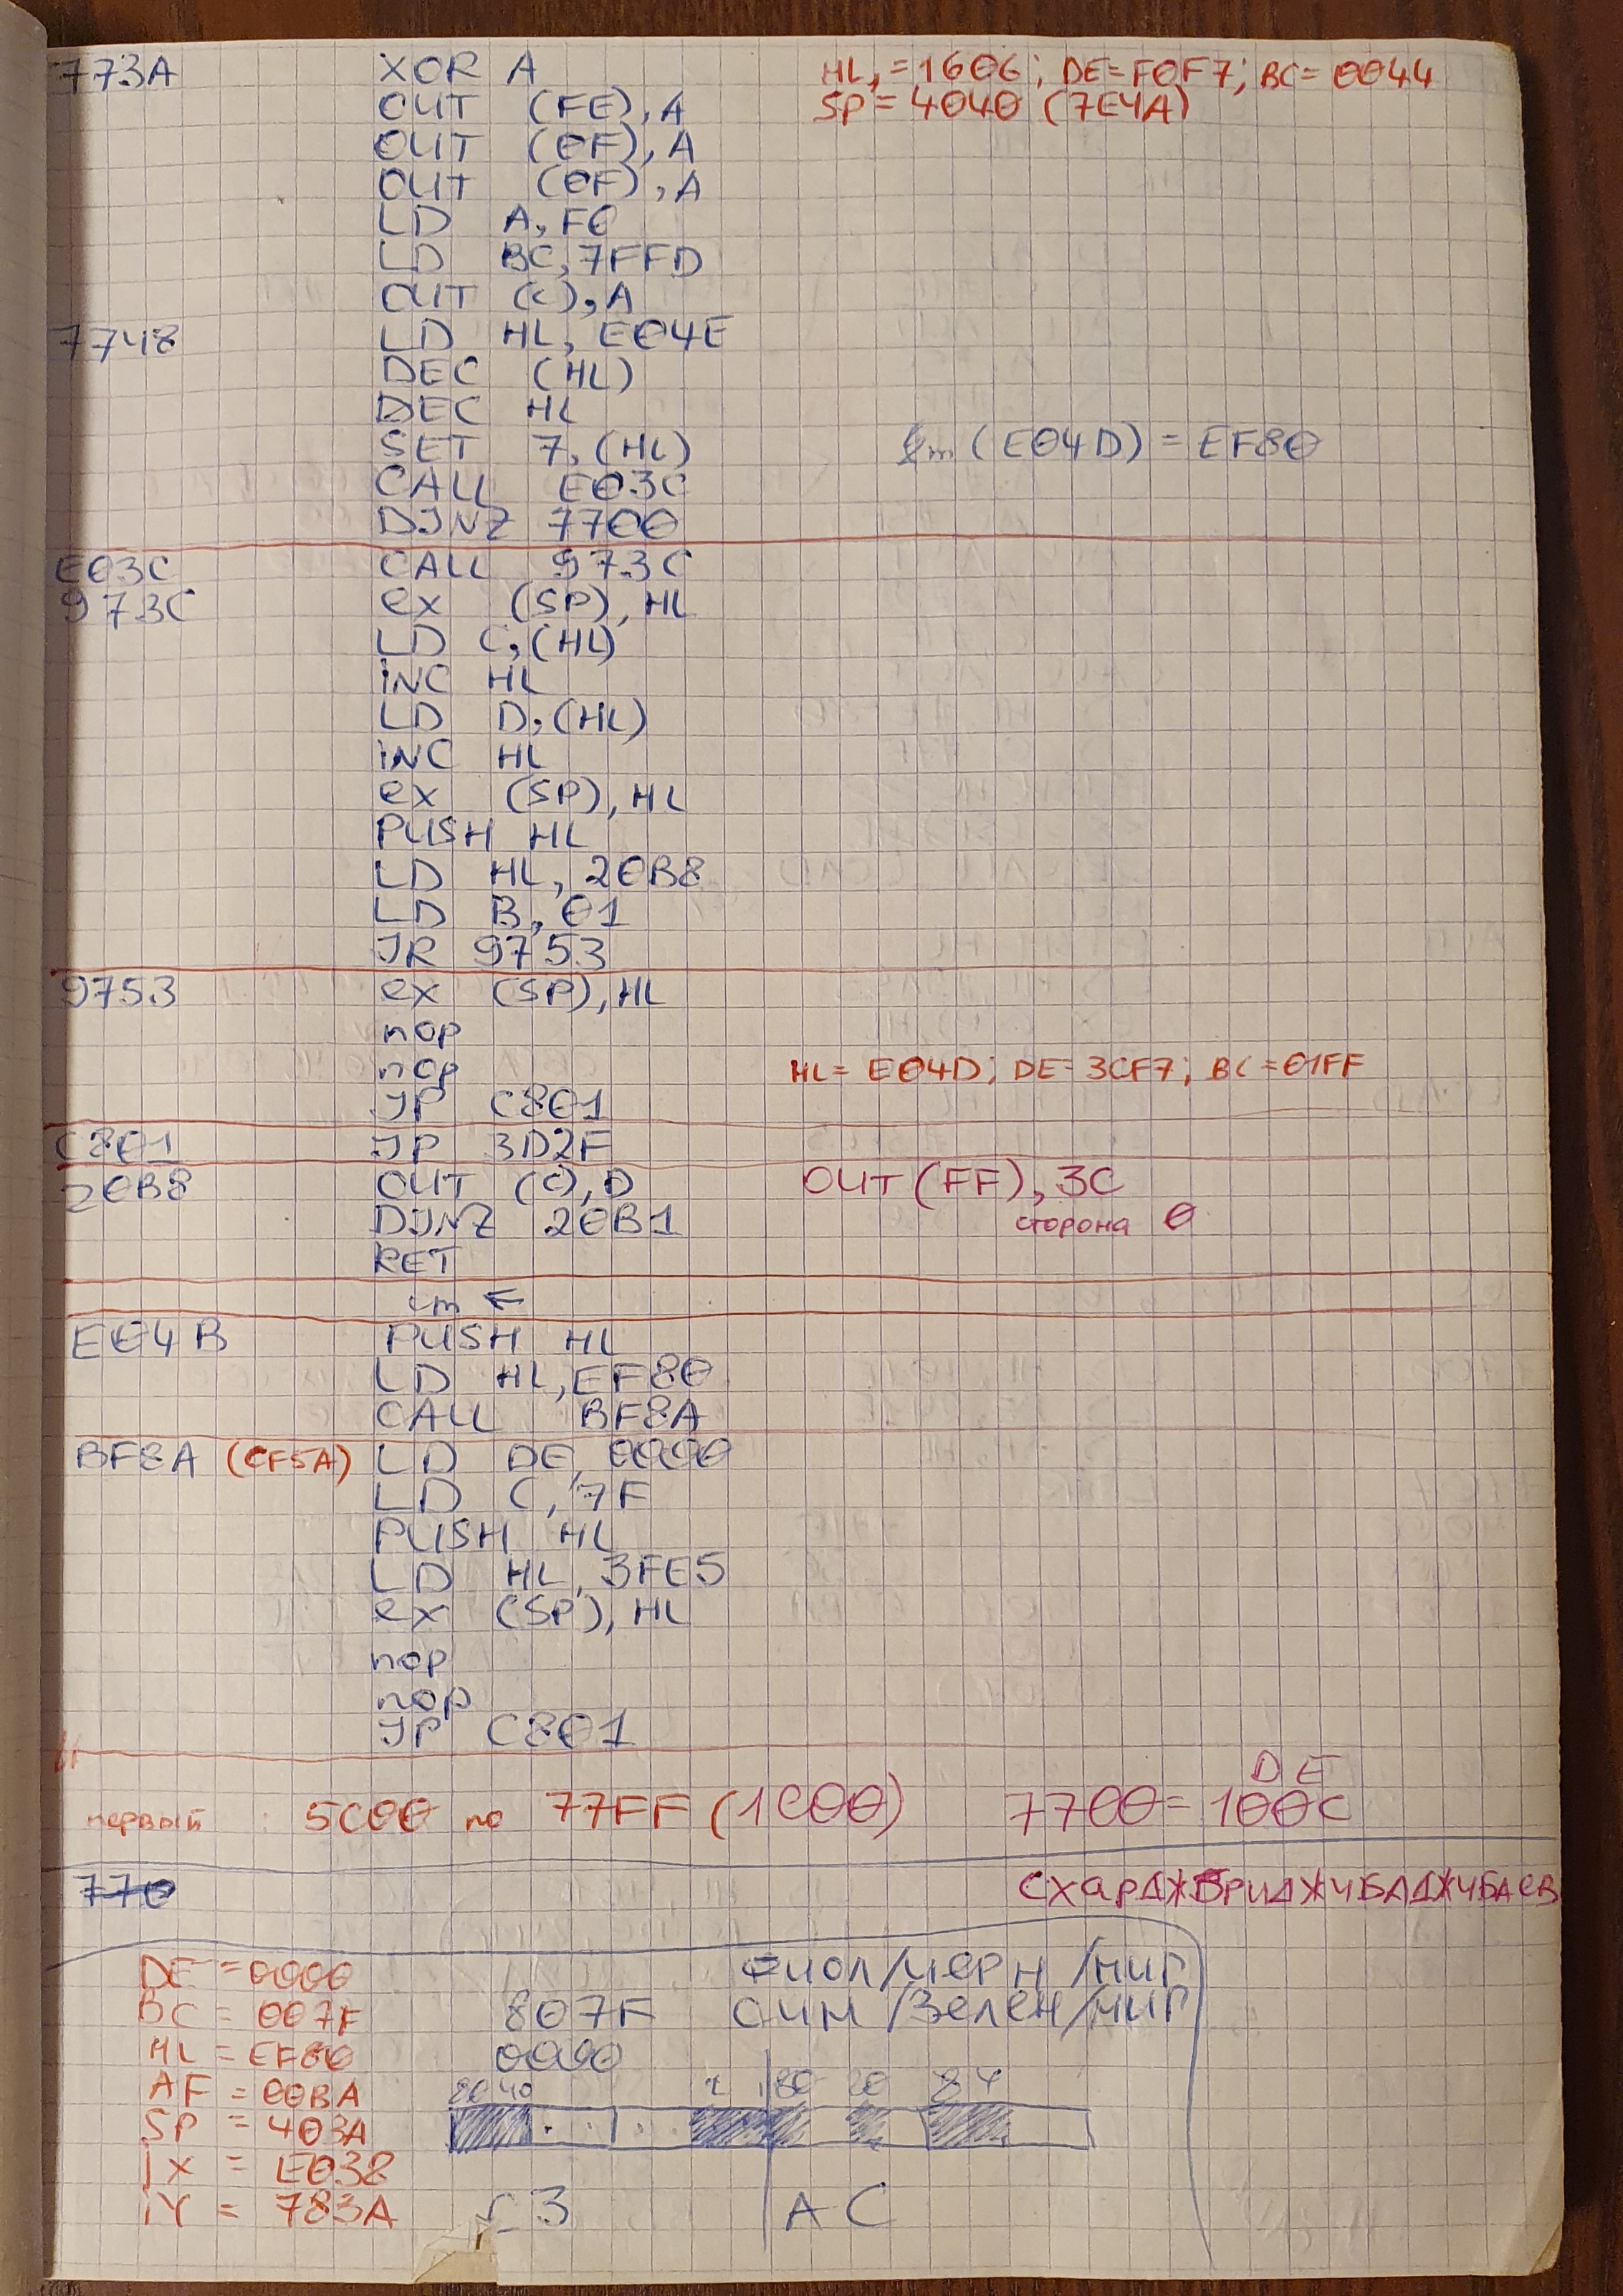 773A XOR A HL,=1606; DE=F0F7; BC=0044
OUT (FE),A SP=4040 (7E4A)
OUT (0F),A
OUT (0F),A
LD A,F0
LD BC,7FFD
OUT (C),A
7748 LD HL,E04E
DEC (HL)
DEC HL
SET 7,(HL) (E04D)=EF80
CALL E03C
DJNZ 7700
E03C CALL 973C
973C ex (SP),HL
LD C,(HL)
INC HL
LD D,(HL)
INC HL
ex (SP),HL
PUSH HL
LD HL,20B8
LD B,01
JR 9753
9753 ex (SP),HL
nop
nop HL=E04D; DE=3CF7; BC=01FF
JP C801
C801 JP 3D2F
20B8 OUT (C),D OUT(FF),3C
DJNZ 20B1 сторона 0
RET
cm ←
E04B PUSH HL
LD HL,EF80
CALL BF8A
BF8A (CF5A) LD DE,0000
LD C,7F
PUSH HL
LD HL,3FE5
ex (SP),HL
nop
nop
JP C801
DE
первый : 5C00 по 77FF (1C00) 7700=100C
770 СхарДЖБриДЖЧБАДЖЧБАев
DE=0000 Фиол/черн/миг
BC=007F 807F Син/Зелен/миг
HL=EF80 0000
AF=00BA 80 40 1 80 20 8 4
SP=403A
IX=E038
IY=783A C3 AC